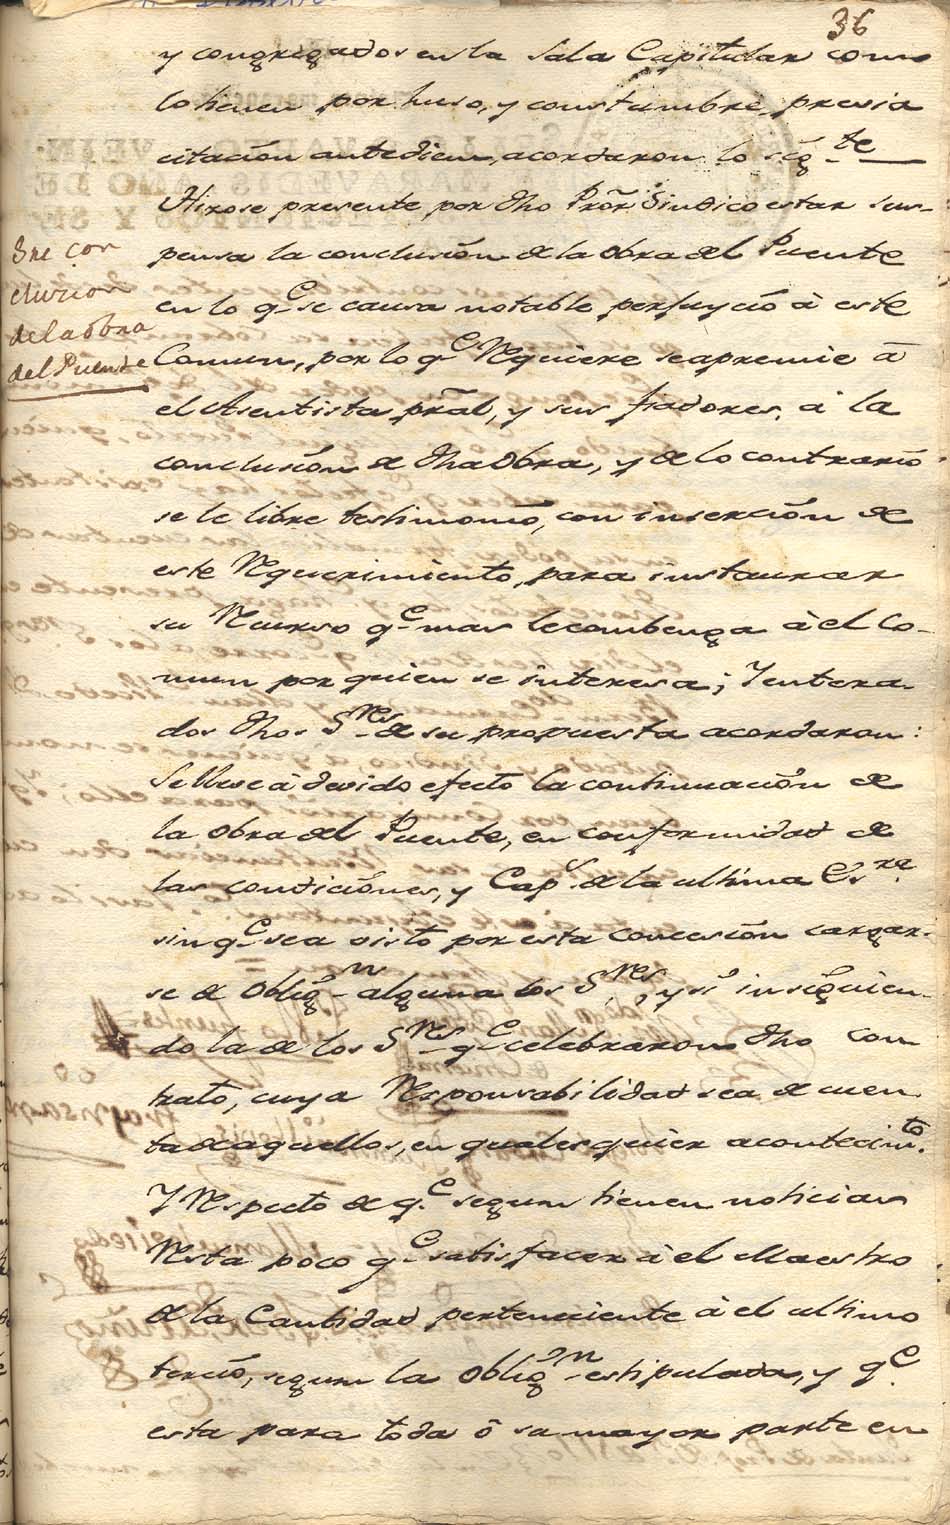 36
y congregados en la Sala Capitular como
lo tienen por huso, y constumbre, presia
citacion antediem, acordaron lo sig.te
Hizose presente por dho Pror Sindico estar sus-
pensa la conclusión de la obra del Puente
en lo q.e se causa notable perjuycio à este
Comun, por lo q.e Requiere se apremie à
el Asentista pral, y sus fiadores, à la
conclusión de dha Obra, y de lo contrario
se le libre testimonio, con inserción de
este Requerimiento, para instaurar
su Recurso q.e mas le combenga à el Co-
mun por quien se interesa; Y entera-
dos dhos S.res de su propuesta acordaron:
Se llebe à devido efecto la continuación de
la Obra del Puente, en conformidad de
las condiciónes, y Cap.s de la ultima Es.ra
sin q.e sea visto por esta concesión cargar-
se de oblig.n alguna los S.res, y si inseguien-
do la de los S.res q.e celebraron dho con
trato, cuya Responsabilidad sea de cuen
ta de aquellos, en qualesquier acontecim.to
Y Respecto de q.e segun tienen noticias
Resta poco q.e satisfacer à el Maestro
de la Cantidad perteneciente à el ultimo
tercio, segun la oblig.n estipulada, y q.e
esta para toda ô su mayor parte en
Sre con
clucion
de la obra
del Puente